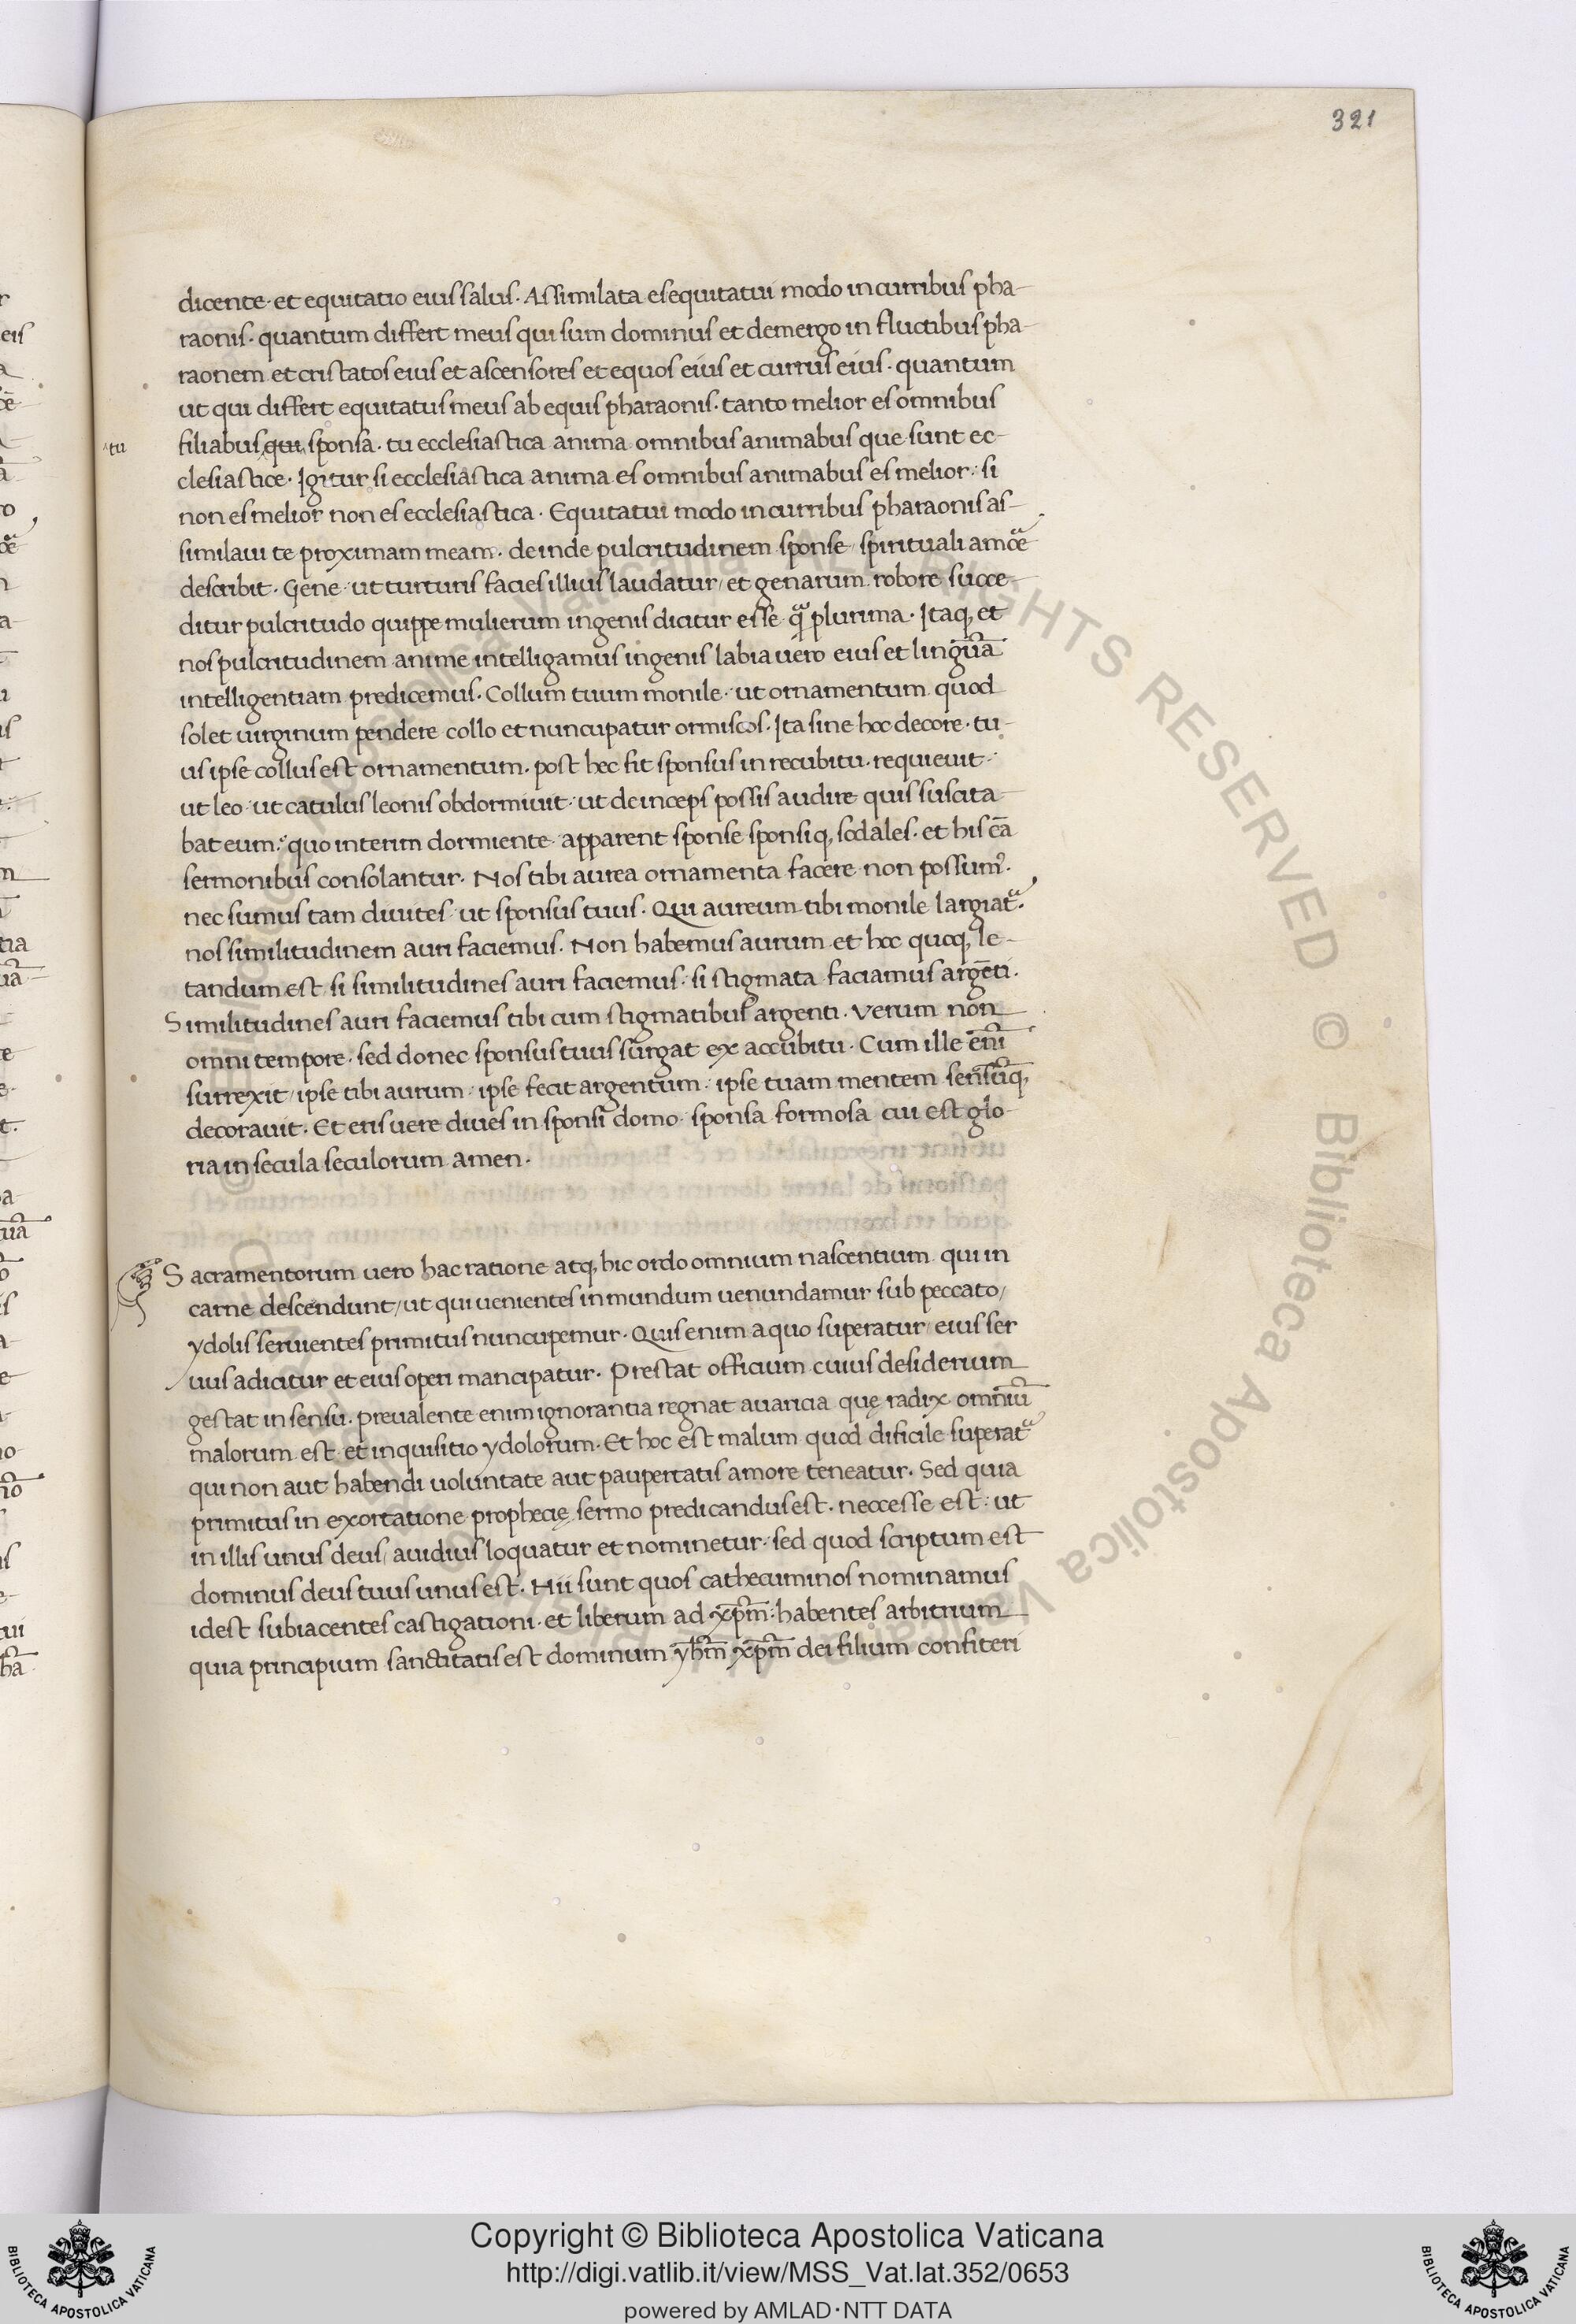 321
dicente· et equitatio eius salus· Assimilata es equitatui modo in curribus pha-
raonis· quantum differt meus qui sum dominus et demergo in fluctibus pha-
raonem et cristatos eius et ascensores et equos eius et currus eius· quantum
ut qui differt equitatus meus ab equis pharaonis· tanto melior es omnibus
tu
filiabus qui sponsa· tu ecclesiastica anima omnibus animabus que sunt ec-
clesiastice· Igitur si ecclesiastica anima es omnibus animabus es melior: si
non es melior non es ecclesiastica· Equitatui modo in curribus pharaonis as-
similaui te proximam meam· deinde pulcritudinem sponse spirituali
describit· Gene· ut turturis facies illius laudatur/ et genarum robore succe-
ditur pulcritudo quippe mulierum in genis dicitur esse plurima· Itaq, et
nos pulcritudinem anime intelligamus in genis labia uero eius et lingua
intelligentiam predicemus· Collum tuum monile· ut ornamentum quod
solet uirginum pendere collo et nuncupatur ormiscos· Ita sine hoc decore· tu-
us ipse collus est ornamentum· post hec fit sponsus in recubitu· requieuit·
ut leo· ut catulus leonis obdormiuit· ut deinceps possis audire quis suscita-
bat eum: quo interim dormiente apparent sponse sponsiq, sodales· et his eā
sermonibus consolantur· Nos tibi aurea ornamenta facere non possum᾽
nec sumus tam diuites ut sponsus tuus· Qui aureum tibi monile largiat᷑·
nos similitudinem auri faciemus· Non habemus aurum et hoc quoq, le-
tandum est si similitudines auri faciemus· si stigmata faciamus argēti·
Similitudines auri faciemus tibi cum stigmatibus argenti· Verum non
omni tempore· sed donec sponsus tuus surgat ex accubitu· Cum ille enī
surrexit/ ipse tibi aurum· ipse fecit argentum· ipse tuam mentem sensūq,
decorauit· Et eris uere diues in sponsi domo sponsa formosa cui est glo-
ria in secula seculorum amen·
Sacramentorum uero hac ratione atq, hic ordo omnium nascentium qui in
carne descendunt/ ut qui uenientes in mundum uenundamur sub peccato/
ydolis seruientes primitus nuncupemur· Quis enim a quo superatur/ eius ser
uus adicitur et eius operi mancipatur· Prestat officium cuius desiderium
gestat in sensu· preualente enim ignorantia regnat auaricia quę radix omniū
malorum est et inquisitio ydolorum· Et hoc est malum quod dificile superat᷑
qui non aut habendi uoluntate aut paupertatis amore teneatur· Sed quia
primitus in exortatione prophecię sermo predicandus est· necesse est: ut
in illis unus deus/ auidius loquatur et nominetur· sed quod scriptum est
dominus deus tuus unus est· Hii sunt quos cathecuminos nominamus
idest subiacentes castigationi· et liberum ad xp̄m· habentes arbitrium
quia principium sanctitatis est dominum yhm̄ xp̄m dei filium confiteri
Copyright © Biblioteca Apostolica Vaticana
http://digi.vatlib.it/view/MSS_Vat.lat.352/0653
powered by AMLAD·NTT DATA
BIBLIOTECA APOSTOLICA VATICANA
BIBLIOTECA APOSTOLICA VATICANA